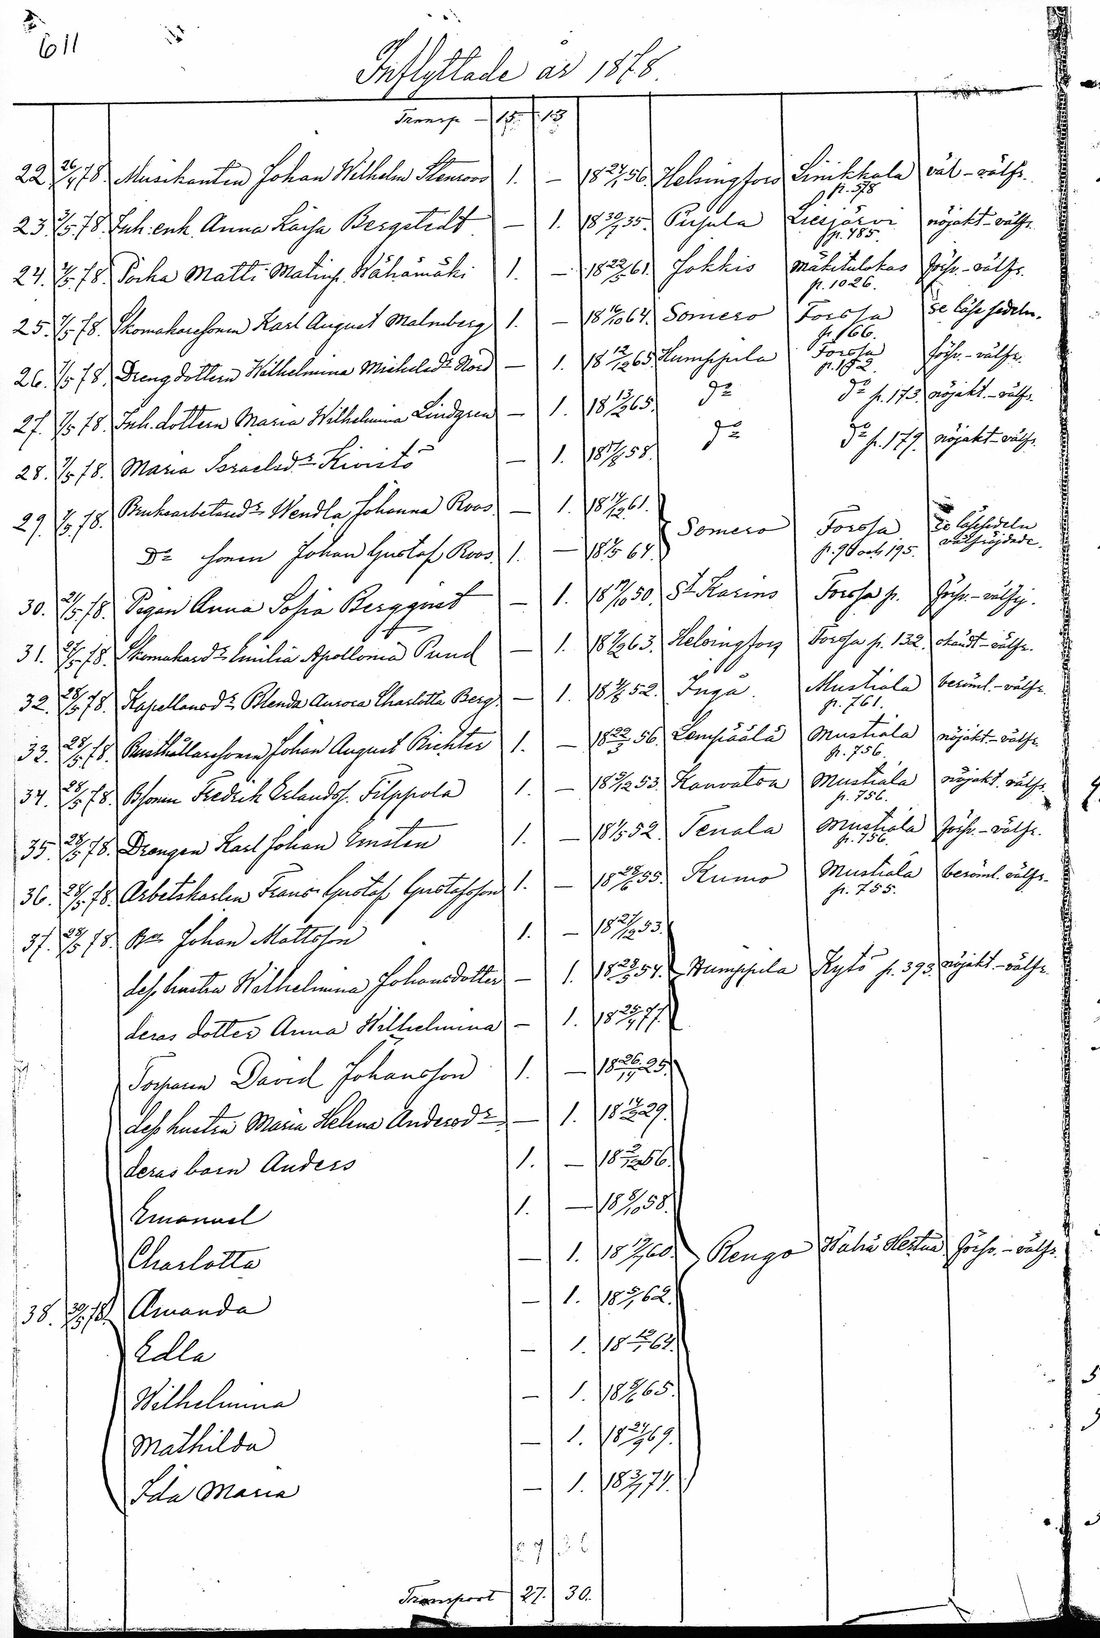 611
Inflyttade år 1878.
Transp — 15. 13
22. 26/4 78. Musikanten Johan Wilhelm Stenroos 1. — 18 24/1 56. Helsingfors Linikkala p. 578 väl – välfr.
23. 3/5 78. Inh. enk. Anna Kaisa Bergstedt — 1. 18 30/7 35. Pusula Liesjärvi p. 485. nöjakt – välfr.
24. 78. Poika Matti Matinp. Kähämäki 1. — 18 22/5 61. Jokkis Mäkitulokas p. 1026. försv. – välfr.
25. 7/5 78. Skomakaresonen Karl August Malmberg 1. — 18 64. Somero Forssa p. 166. Se läse sedeln.
26. 7/5 78. Drengdottern Wilhelmina Michelsdr Nord — 1. 18 12/12 65. Humppila Forssa p. 192. försv. – välfr.
27. 7/5 78. Inh. dottern Maria Wilhelmina Lindgren — 1. 18 13/2 65. do do p. 173. nöjakt. – välfr.
28. 7/5 78. Maria Israelsdr Kivistö — 1. 18 58. do do p. 179. nöjakt – välfr.
29. 78. Bruksarbetaredr Wendla Johanna Roos — 1. 18 61. Somero Forssa p. 90 och 195. Se läsesedeln välfräjdade.
Do sonen Johan Gustaf Roos. 1. — 18 64.
30. 21/5 78. Pigan Anna Sofia Bergqvist — 1. 18 50. St Karins Forssa p. försv. – välfrj.
31. 78. Skomakaredr Emilia Apollonia Pund — 1. 18 63. Helsingfors Forssa p. 132. – välfr.
32. 28/5 78. Kapellansdr Blenda Aurora Charlotta Berg. — 1. 18 52. Ingå. Mustiala p. 761. beröml. – välfr.
33. 28/5 78. Rusthållaresonen Johan August Richter 1. — 18 22/3 56. Lempäälä Mustiala p. 756. nöjakt – välfr.
34. 28/5 78. Bsonen Fredrik Erlandsf. Filppola 1. — 18 53. Kauvatsa Mustiala p. 756. nöjakt. välfr.
35. 28/5 78. Drengen Karl Johan Ernsten 1. — 18 52. Tenala Mustiala p. 756. försv. – välfr.
36. 28/5 78. Arbetskarlen Frans Gustaf Gustafsson 1. — 18 55. Kumo Mustiala p. 755. beröml. välfr.
37. 28/5 78. Bn Johan Mattsson 1. — 18 53.
dess hustru Wilhelmina Johansdotter — 1. 18 28/5 54. Humppila Kytö p. 393. nöjakt. – välfr.
deras dotter Anna Wilhelmina — 1. 18 25/4 77.
Torparen David Johansson 1. — 18 25.
dess hustru Maria Helena Andersdr — 1. 18 29.
deras barn Anders 1. — 18 56.
Emanuel 1. — 18 8/10 58.
Charlotta — 1. 18 60. Rengo Wähä Hestua försv. – välfr.
38. 30/5 78. Amanda — 1. 18 62.
Edla — 1. 18 64.
Wilhelmina — 1. 18 65.
Mathilda — 1. 18 24/9 69.
Ida Maria — 1. 18 3/7 74.
Transport 27. 30.